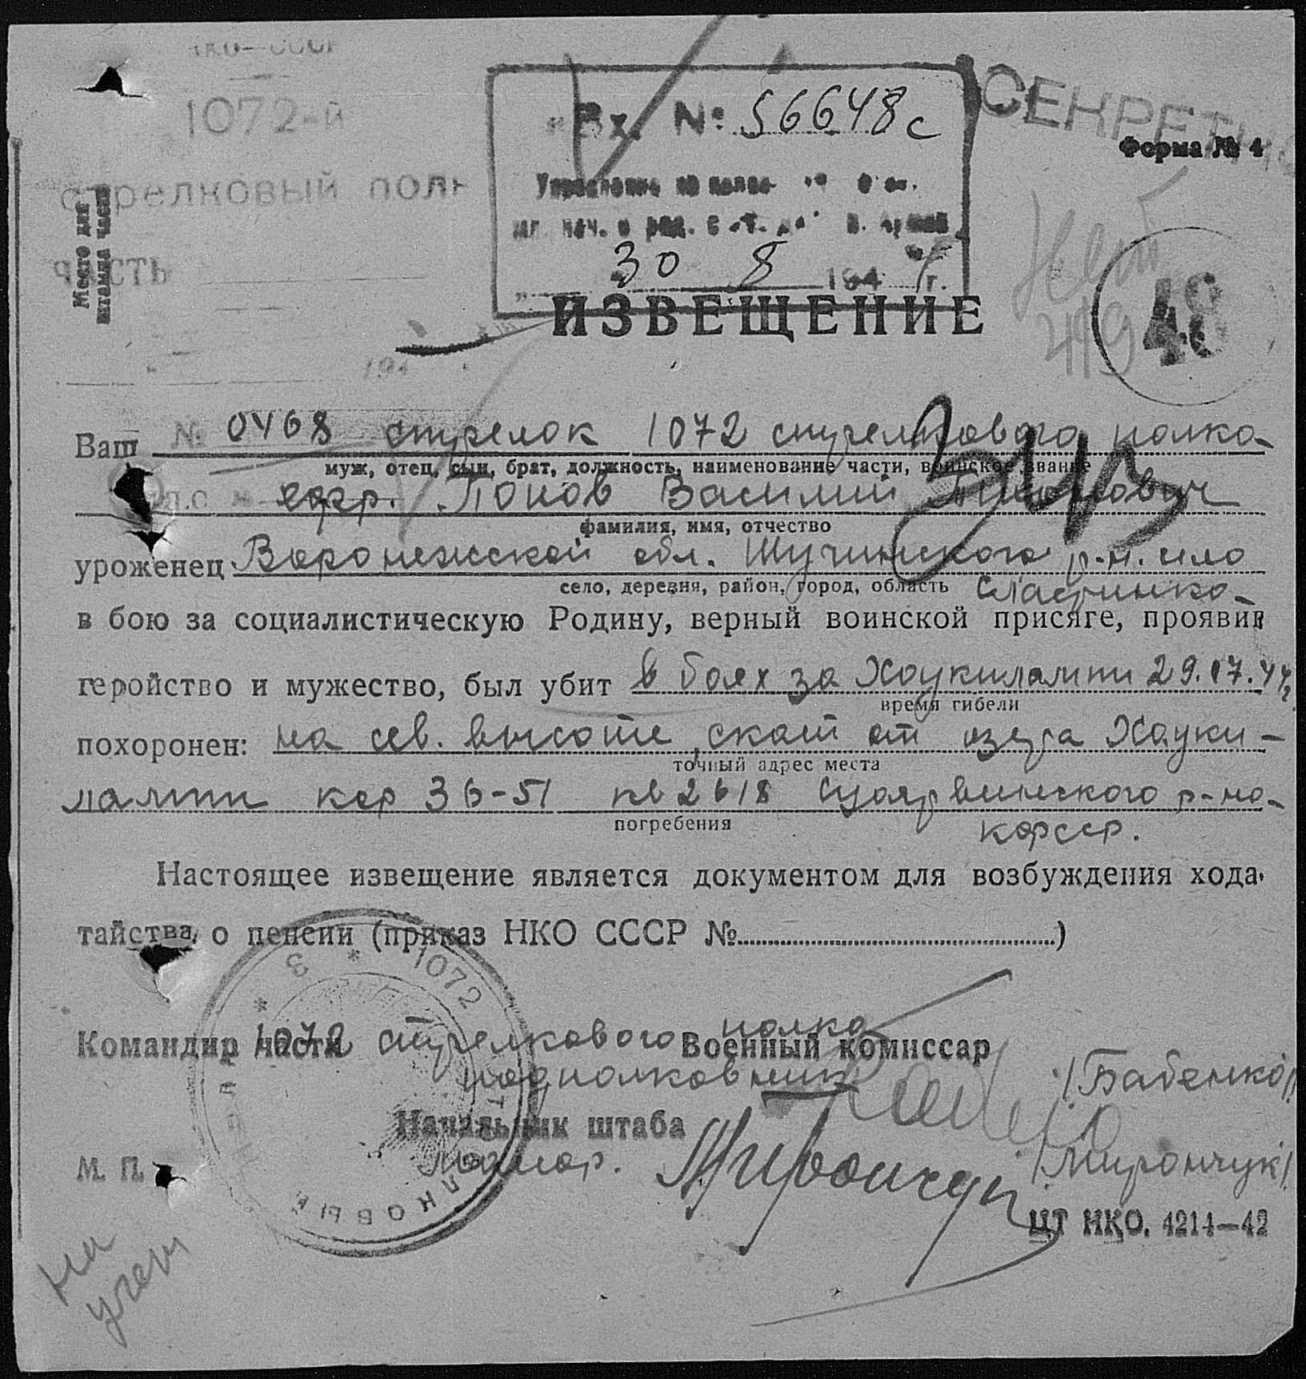 НКО—СССР
1072-й
стрелковый полк
часть
Место для
штампа части
194
Вх. № 56648с
30 8 1944 г.
СЕКРЕТНО
Форма № 4
48
ИЗВЕЩЕНИЕ
Ваш № 0468 стрелок 1072 стрелкового полка
муж, отец, сын, брат, должность, наименование части, воинское звание
ефр. Попов Василий
фамилия, имя, отчество
уроженец Воронежской обл. Щучинского р-н. село
село, деревня, район, город, область
в бою за социалистическую Родину, верный воинской присяге, проявив
геройство и мужество, был убит в боях за Хаукилампи 29.07.44 г.
время гибели
похоронен: на сев. высоте, скат от озера Хауки-
точный адрес места
лампи кор 36-51 кв 2618 Суоярвинского р-на
погребения
кфсср.
Настоящее извещение является документом для возбуждения хода-
тайства о пенсии (приказ НКО СССР №)
Командир части 1072 стрелкового полка Военный комиссар
подполковник /Бабенко/
Начальник штаба
майор. /Мирончук/
М. П.
ЦТ НКО. 4214—42
на
учет